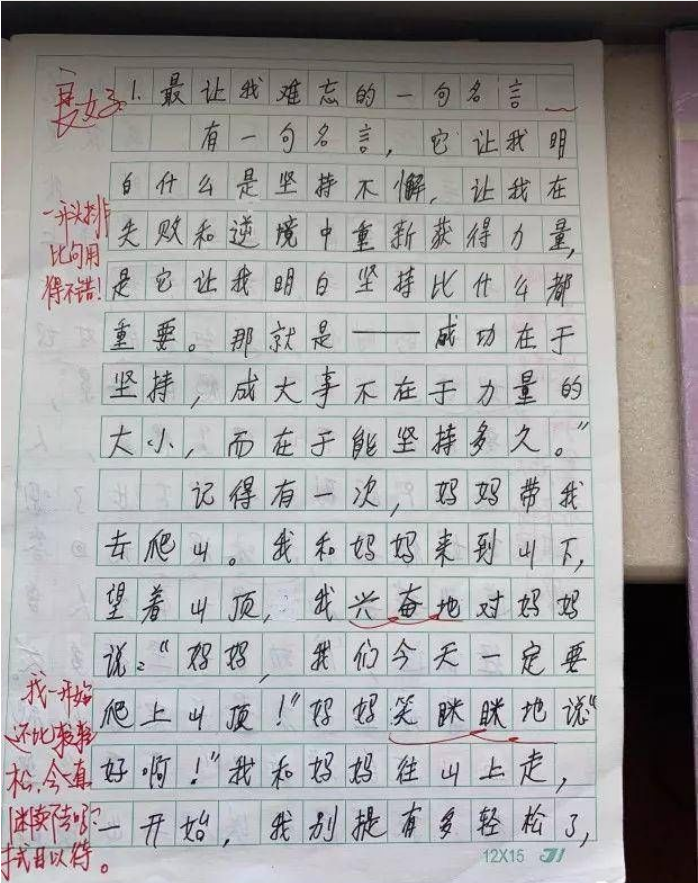 1.最让我难忘的一句名言
有一句名言，它让我明
白什么是坚持不懈，让我在
失败和逆境中重新获得力量，
是它让我明白坚持比什么都
重要。那就是——成功在于
坚持，成大事不在于力量的
大小，而在于能坚持多久。”
记得有一次，妈妈带我
去爬山。我和妈妈来到山下，
望着山顶，我兴奋地对妈妈
说：“妈妈，我们今天一定要
爬上山顶！”妈妈笑眯眯地说“
好啊！”我和妈妈往山上走，
一开始，我别提有多轻松了，
12X15
一开头排
比句用
得不错！
我一开始
还比较轻
松，会一直
继续下去吗？
拭目以待。